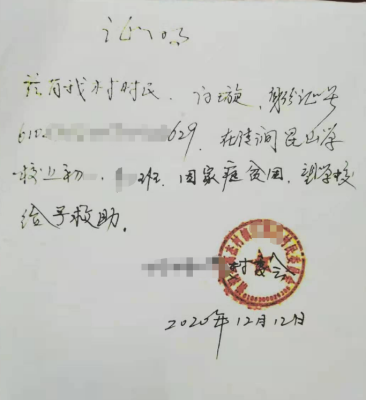 证明
兹有我村村民,
身份证号
61 629,在清涧昆山学
校上初 班,因家庭贫困,望学校
给予救助。
村委会
2020年12月12日